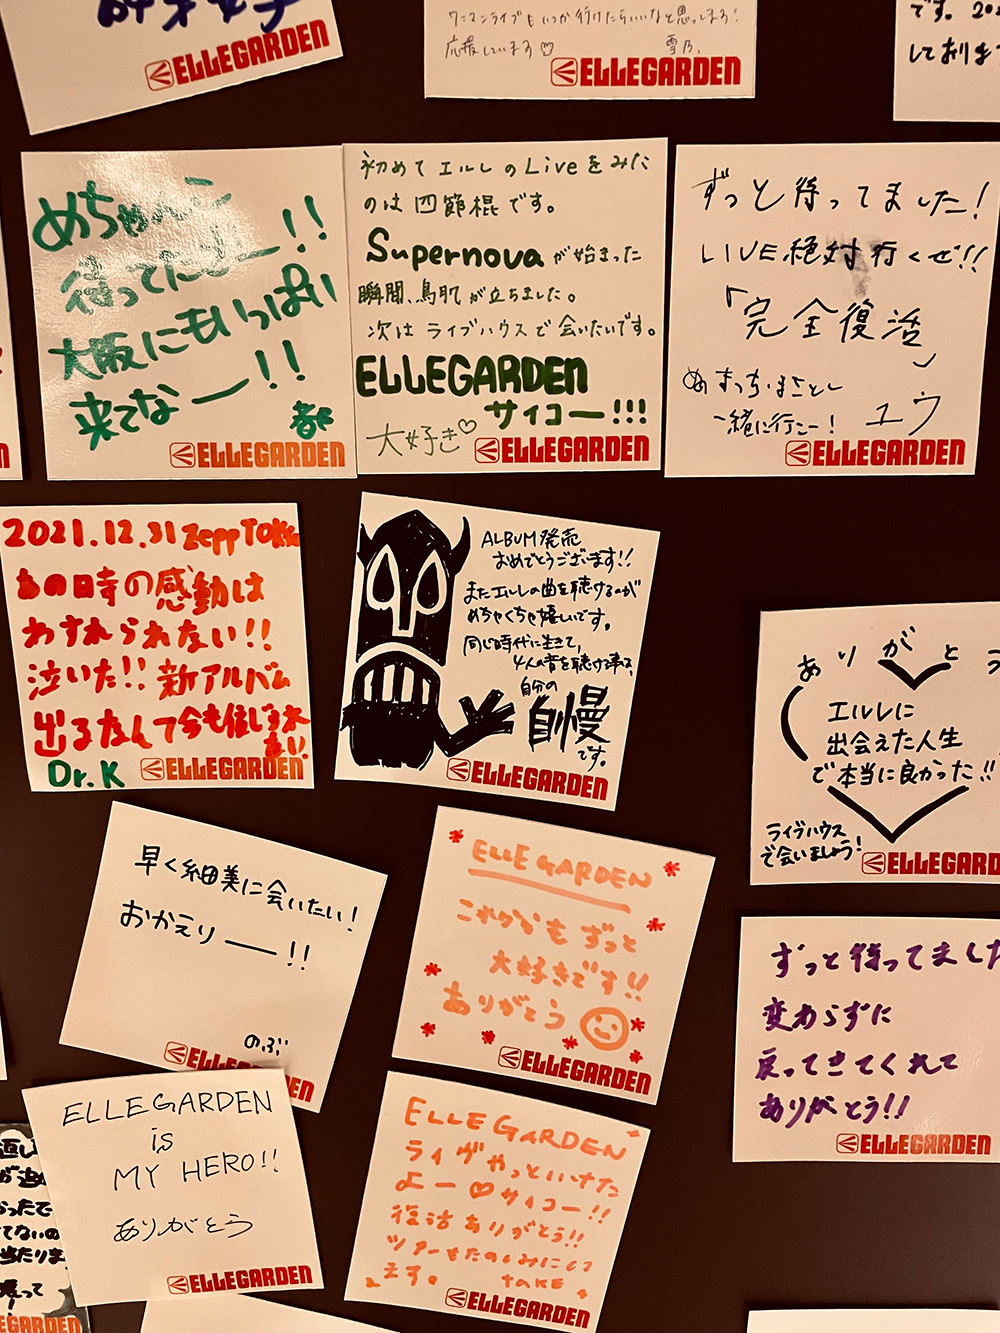 ELLEGARDEN
ワンマンライブもいつか行けたらいいなと思ってます!
応援しています♡
雪乃.
ELLEGARDEN
です。
しており
めちゃんこ
待ってたよー!!
大阪にもいっぱい
来てなー!!
ELLEGARDEN
初めてエルレのLiveをみた
のは四節棍です。
Supernovaが始まった
瞬間、鳥肌が立ちました。
次はライブハウスで会いたいです。
ELLEGARDEN
サイコー!!!
大好き♡
ELLEGARDEN
ずっと待ってました!
LIVE絶対行くぜ!!
「完全復活」
一緒に行こー!
ユウ
ELLEGARDEN
2021.12.31 Zepp TOKYO
あの時の感動は
わすれられない!!
泣いた!! 新アルバム
出るなんて今も信じられない!
Dr.K
ELLEGARDEN
ALBUM発売
おめでとうございます!!
またエルレの曲を聴けるのが
めちゃくちゃ嬉しいです。
同じ時代に生きて、
4人の音を聴ける事は
自分の
自慢
です。
ELLEGARDEN
ありがとう
エルレに
出会えた人生
で本当に良かった!!
ライブハウス
で会いましょう!
ELLEGARD
早く細美に会いたい!
おかえりー!!
のぶ
ELLEGARDEN
ELLE GARDEN
これからもずっと
大好きです!!
ありがとう
ELLEGARDEN
ずっと待ってました
変わらずに
戻ってきてくれて
ありがとう!!
ELLEGARDEN
ELLEGARDEN
is
MY HERO!!
ありがとう
ELLEGARDEN
ELLEGARDEN
ライヴやっといけた
よー♡サイコー!!
復活ありがとう!!
ツアーもたのしみにして
ます。 TAKE
ELLEGARDEN
ったで
てないの
当たりま
EGARDEN